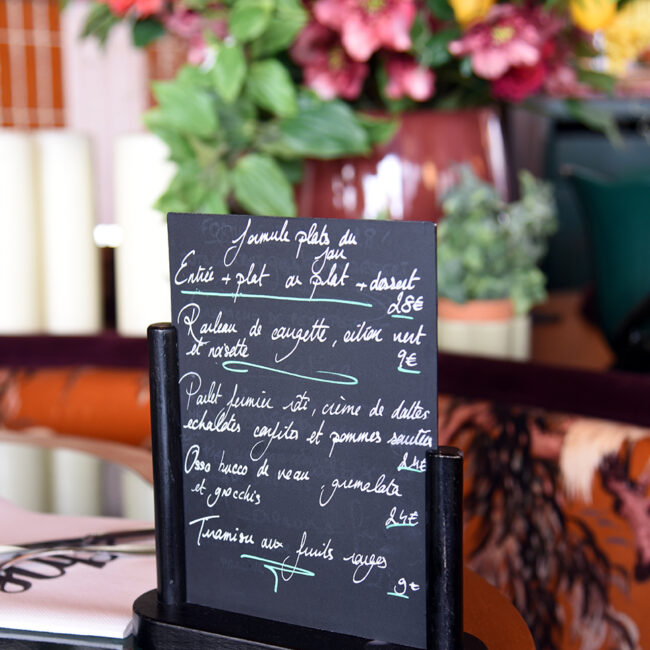 Formule plats du
jour
Entrée + plat ou plat + dessert
28€
Rouleau de courgette, citron vert
et noisette 9€
Poulet fermier rôti, crème de dattes
echalotes confites et pommes sautées
24€
Osso bucco de veau, gremolata
et gnocchis
24€
Tiramisu aux fruits rouges
9€